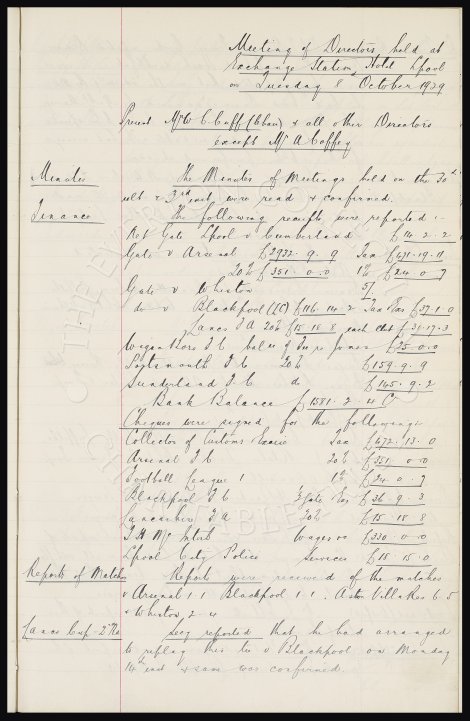 Meeting of Directors, held at
Exchange Station Hotel Lpool
on Tuesday 8 October 1929
Present Mr W C Cuff (Chair) & all other Directors
except Mr A Coffey
Minutes
The Minutes of Meetings held on the 30th
ult & 3rd inst were read & confirmed.
Finance
The following receipts were reported :-
Net Gate Lpool v Cumberland £14.2.2
Gate v Arsenal £2932.9.9 Tax £471.19.11
20% £351.0.0 1% £24.0.7
Gate v Whiston 5/-
do v Blackpool (LC) £116.14.2 Tax £37.1.0
Lancs FA 20% £15.18.8 each club £31.17.3
Wigan Boro F C £25.0.0
Portsmouth F C 20% £159.9.9
Sunderland F C do £145.9.2
Bank Balance £1581.2.4 C
Cheques were signed for the following:
Collector of Customs Excise Tax £472.13.0
Arsenal F C 20% £351.0.0
Football League 1% £24.0.7
Blackpool F C £36.9.3
Lancashire F A 20% £15.18.8
T H McIntosh Wages £330.0.0
Lpool City Police Services £18.15.0
Reports of Matches
Reports were received of the matches
v Arsenal 1.1 Blackpool 1.1. Aston Villa Res 6.5
& Whiston 2-4
Lancs Cup
Secy reported that he had arranged
to replay this tie v Blackpool on Monday
14th inst & same was confirmed